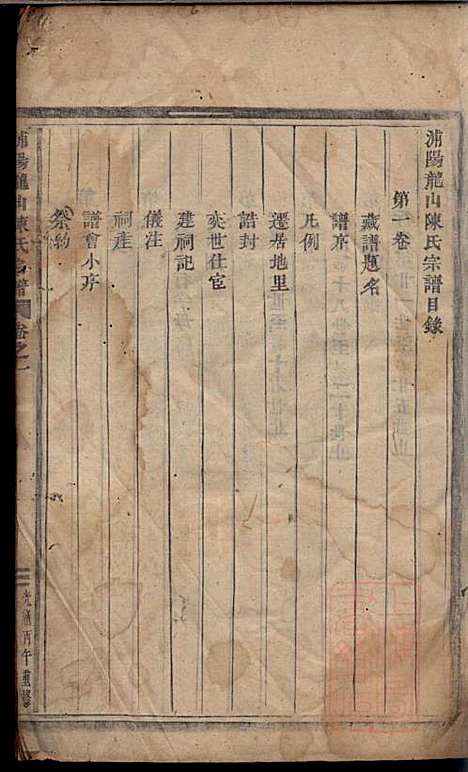 浦陽龍山陳氏宗譜目錄
第一卷
藏譜題名
譜序
凡例
遷居地里
誥封
奕世仕宦
建祠記
儀注
祠産
譜會小序
祭約
浦陽龍山陳氏宗譜
卷之一
光緒丙午重修